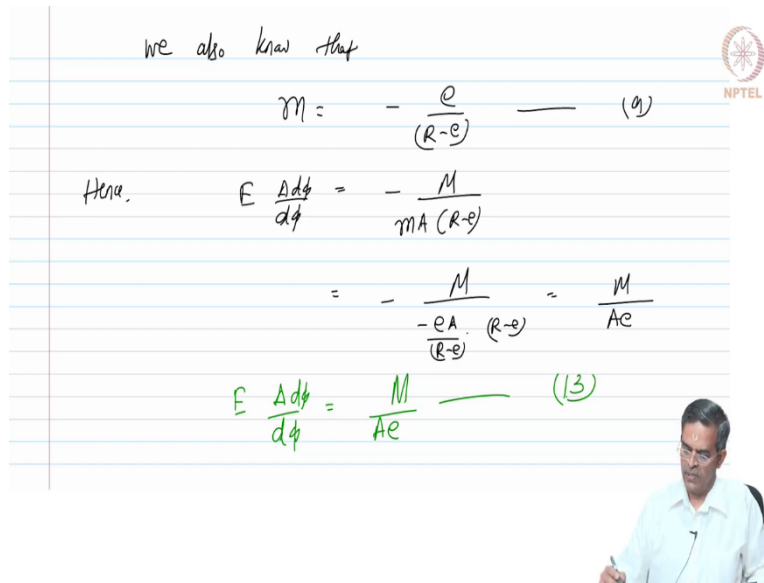 we also know that
NPTEL
m = - e/(R-e) —— (9)
Hence. E Δdφ/dφ = - M/(mA (R-e))
= - M/(-eA/(R-e) . (R-e)) = M/Ae
E Δdφ/dφ = M/Ae —— (13)